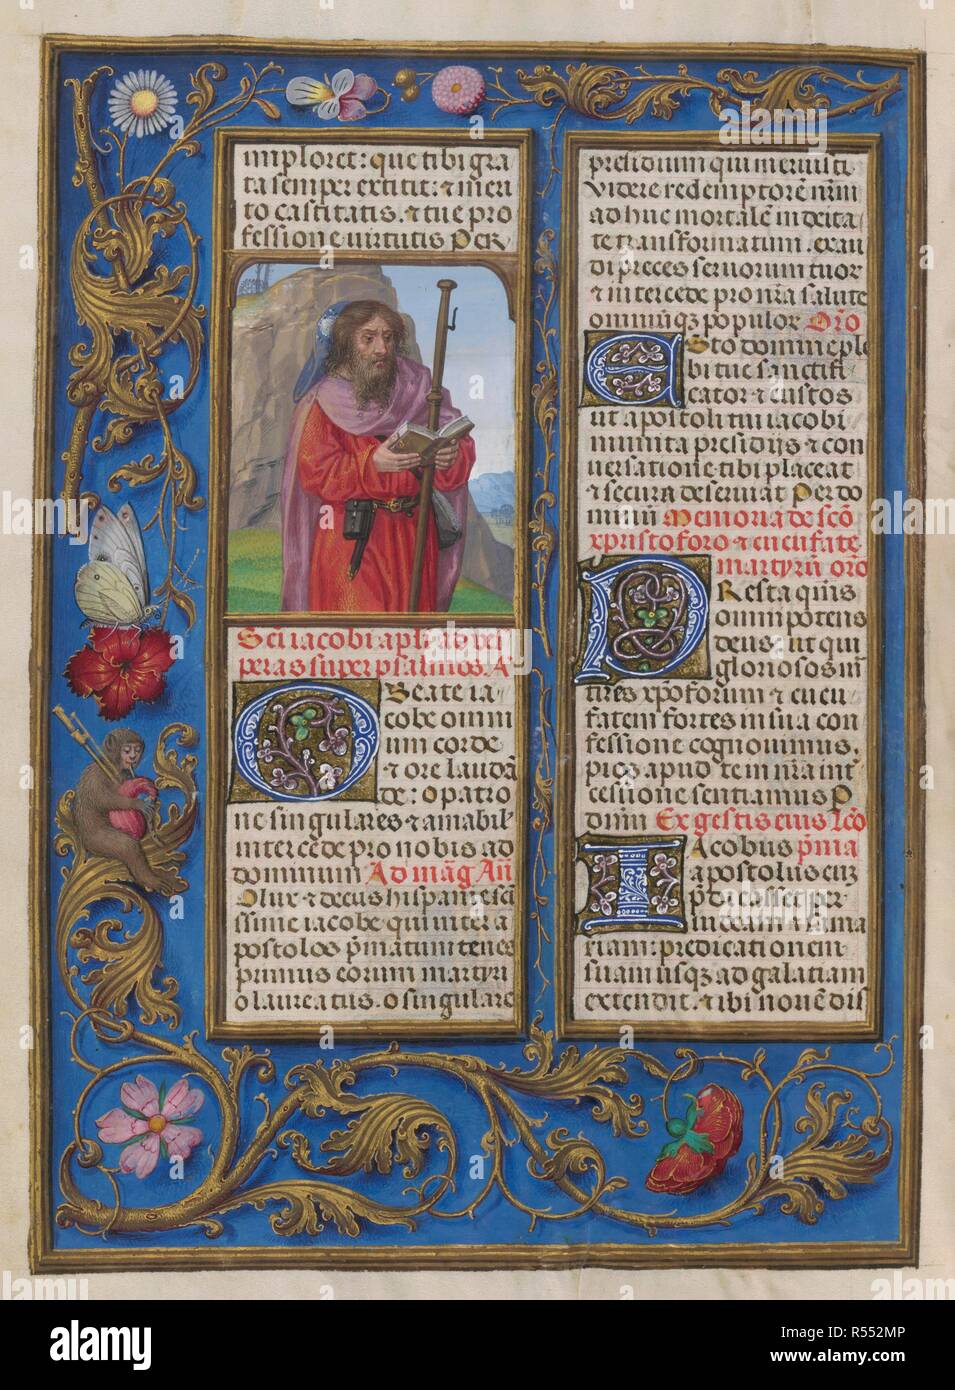 imploret: que tibi gra
ta semper extitit: & meri
to castitatis. & tue pro
fessione uirtutis Per
Sc̃i iacobi apl̃i ad ves
peras super psalmos A
O Beate ia
cobe omni
um corde
& ore laudã
de: o patro
ne singulares & amabil
intercede pro nobis ad
dominum Ad mãg Añ
O lux & decus hispanie sc̃i
ssime iacobe qui inter a
postolos p̃matum tenes
primus eorum martyri
o laureatus. o singulare
presidium qui meruisti
videre redemptorẽ nr̃m
ad huc mortalẽ in deita
te transformatum. exau
di preces seruorum tuor
& intercede pro nr̃a salute
omniũqꝫ populor Orõ
Esto domine ple
bi tue sanctifi
cator & custos
ut apostoli tui iacobi
munita presidijs & con
uersatione tibi placeat
& secura deseruiat Per do
minũ Memoria de scõ
xp̃istoforo & cucufate
martyrũ orõ
Presta qũs
omnipotens
deus. ut qui
gloriosos m̃
tires xp̃oforum & cucu
fatem fortes in sua con
fessione cognouimus.
pios apud te in nr̃a int̃
cessione sentiamus P
dñm Ex gestis eius lcõ
Iacobus p̃ma
apostolus eiꝫ
p̃dicasset per
iudeam & sama
riam: predicationem
suam usqꝫ ad galatiam
extendit. & tibi nouẽ dis
alamy
a
Image ID: R552MP
www.alamy.com